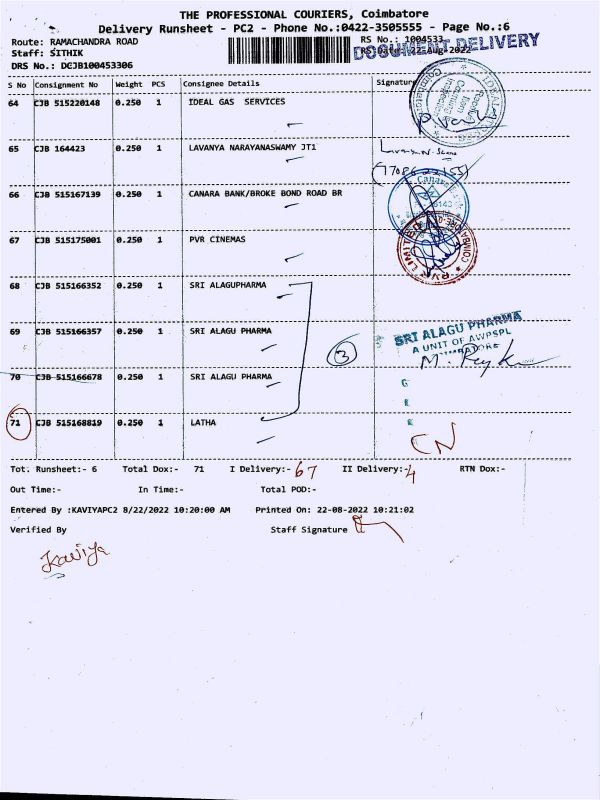 THE PROFESSIONAL COURIERS, Coimbatore
Delivery Runsheet - PC2 - Phone No.:0422-3505555 - Page No.:6
Route: RAMACHANDRA ROAD
RS No.: 1004533
DOCUMENT DELIVERY
Staff: SITHIK
RS Date: 22-Aug-2022
DRS No.: DCJB100453306
S No Consignment No Weight PCS Consignee Details Signature
64 CJB 515220148 0.250 1 IDEAL GAS SERVICES
65 CJB 164423 0.250 1 LAVANYA NARAYANASWAMY JT1
66 CJB 515167139 0.250 1 CANARA BANK/BROKE BOND ROAD BR
Canara
67 CJB 515175001 0.250 1 PVR CINEMAS
PVR LIMITED COIMBATORE
68 CJB 515166352 0.250 1 SRI ALAGUPHARMA
69 CJB 515166357 0.250 1 SRI ALAGU PHARMA
3
SRI ALAGU PHARMA
A UNIT OF AWPSPL
70 CJB 515166678 0.250 1 SRI ALAGU PHARMA
71 CJB 515168819 0.250 1 LATHA
CN
Tot. Runsheet:- 6 Total Dox:- 71 I Delivery:- 67 II Delivery:- 4 RTN Dox:-
Out Time:- In Time:- Total POD:-
Entered By :KAVIYAPC2 8/22/2022 10:20:00 AM Printed On: 22-08-2022 10:21:02
Verified By Staff Signature
Kaviya